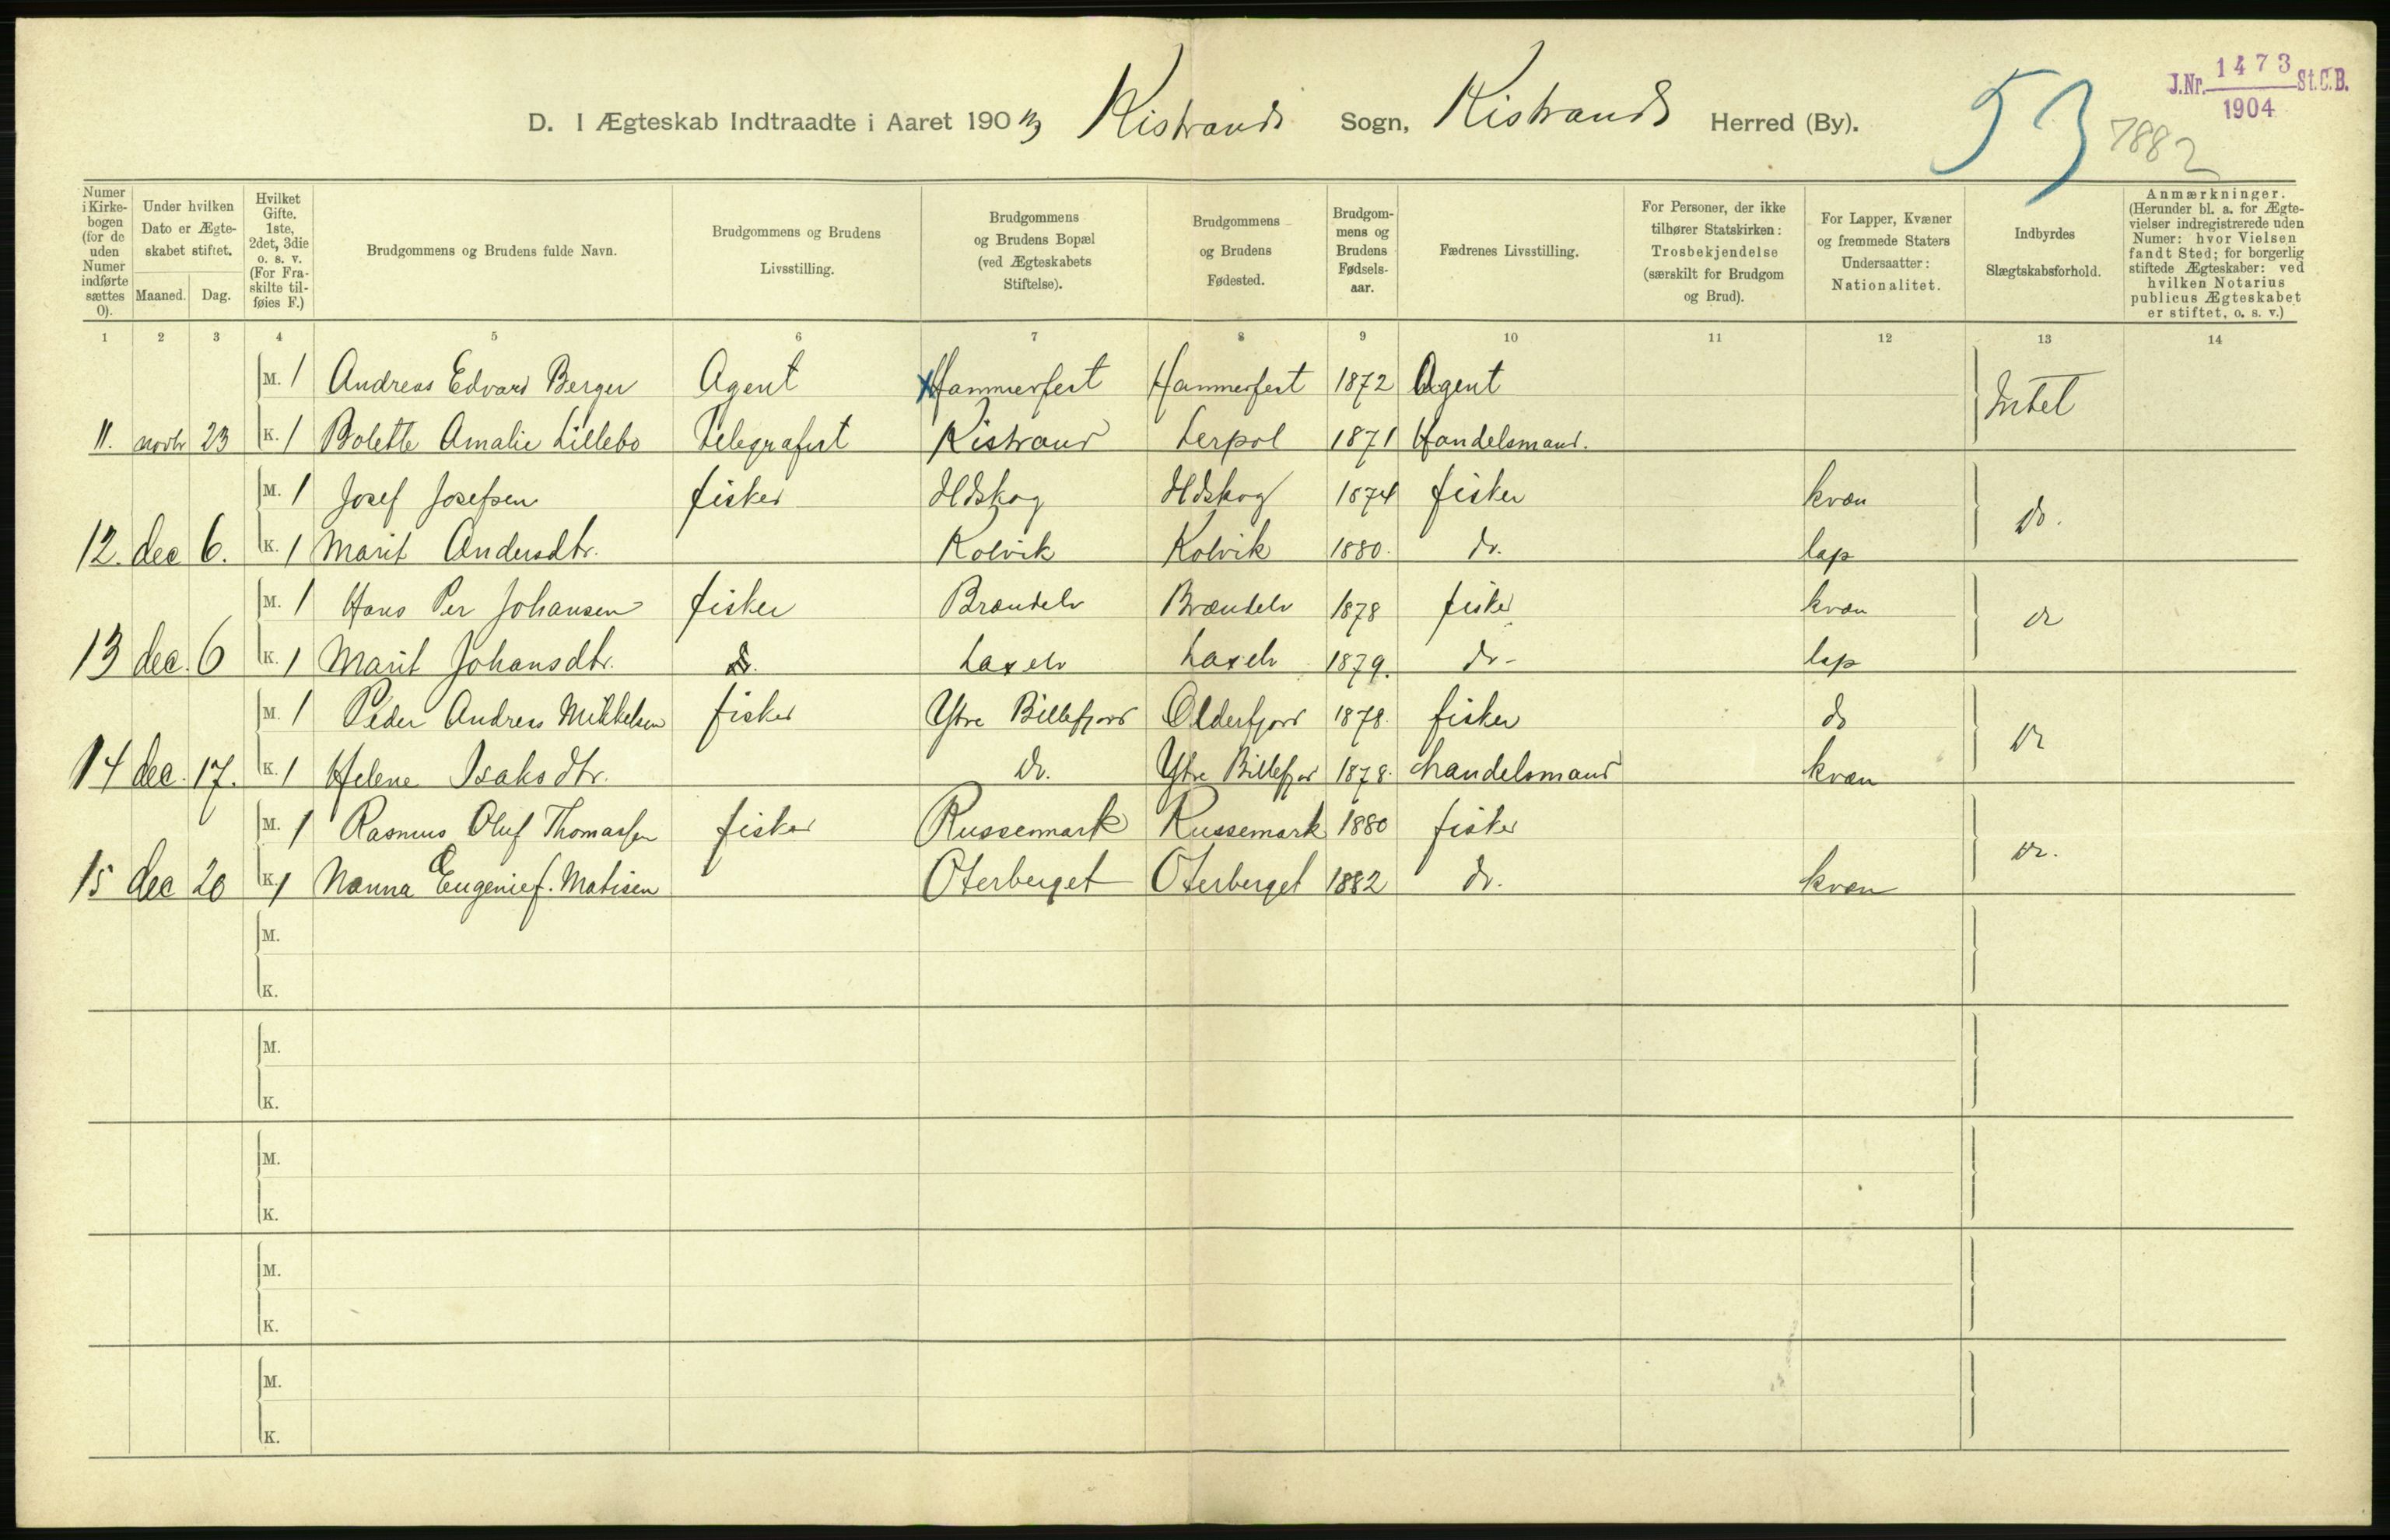 J.Nr. 1473 St.C.B.
1904
53
7882
D. I Ægteskab Indtraadte i Aaret 1903 Kistrands Sogn, Kistrands Herred (By).
Numer i Kirke-bogen (for de uden Numer indførte sættes 0).
Under hvilken Dato er Ægte-skabet stiftet.
Maaned. Dag.
Hvilket Gifte. 1ste, 2det, 3die o. s. v. (For Fra-skilte til-føies F.)
Brudgommens og Brudens fulde Navn.
Brudgommens og Brudens Livsstilling.
Brudgommens og Brudens Bopæl (ved Ægteskabets Stiftelse).
Brudgommens og Brudens Fødested.
Brudgom-mens og Brudens Fødsels-aar.
Fædrenes Livsstilling.
For Personer, der ikke tilhører Statskirken: Trosbekjendelse (særskilt for Brudgom og Brud).
For Lapper, Kvæner og fremmede Staters Undersaatter: Nationalitet.
Indbyrdes Slægtskabsforhold.
Anmærkninger. (Herunder bl. a. for Ægte-vielser indregistrerede uden Numer: hvor Vielsen fandt Sted; for borgerlig stiftede Ægteskaber: ved hvilken Notarius publicus Ægteskabet er stiftet, o. s. v.)
1 2 3 4 5 6 7 8 9 10 11 12 13 14
M. 1 Andreas Edvard Berger Agent Hammerfest Hammerfest 1872 Agent Intet
11. novbr 23 K. 1 Bolette Amalie Lillebo Telegrafist Kistrand Lerpol 1871 Handelsmand.
M. 1 Josef Josefsen fisker Ildskog Ildskog 1874 fisker kvæn do.
12. dec 6. K. 1 Marit Andersdtr. Kolvik Kolvik 1880. do. lap
M. 1 Hans Per Johansen fisker Brændelv Brændelv 1878 fisker kvæn do
13 dec. 6 K. 1 Marit Johansdtr. Laxelv Laxelv 1879. do - lap
M. 1 Peder Andreas Mikkelsen fisker Ytre Billefjord Olderfjord 1878. fisker do do
14 dec. 17. K. 1 Helene Isaksdtr. do. Ytre Billefjord 1878. handelsmand kvæn
M. 1 Rasmus Oluf Thomassen fisker Russemark Russemark 1880 fisker do.
15 dec 20 K. 1 Nanna Eugenie f. Matisen Oterberget Oterberget 1882 do. kvæn
M.
K.
M.
K.
M.
K.
M.
K.
M.
K.